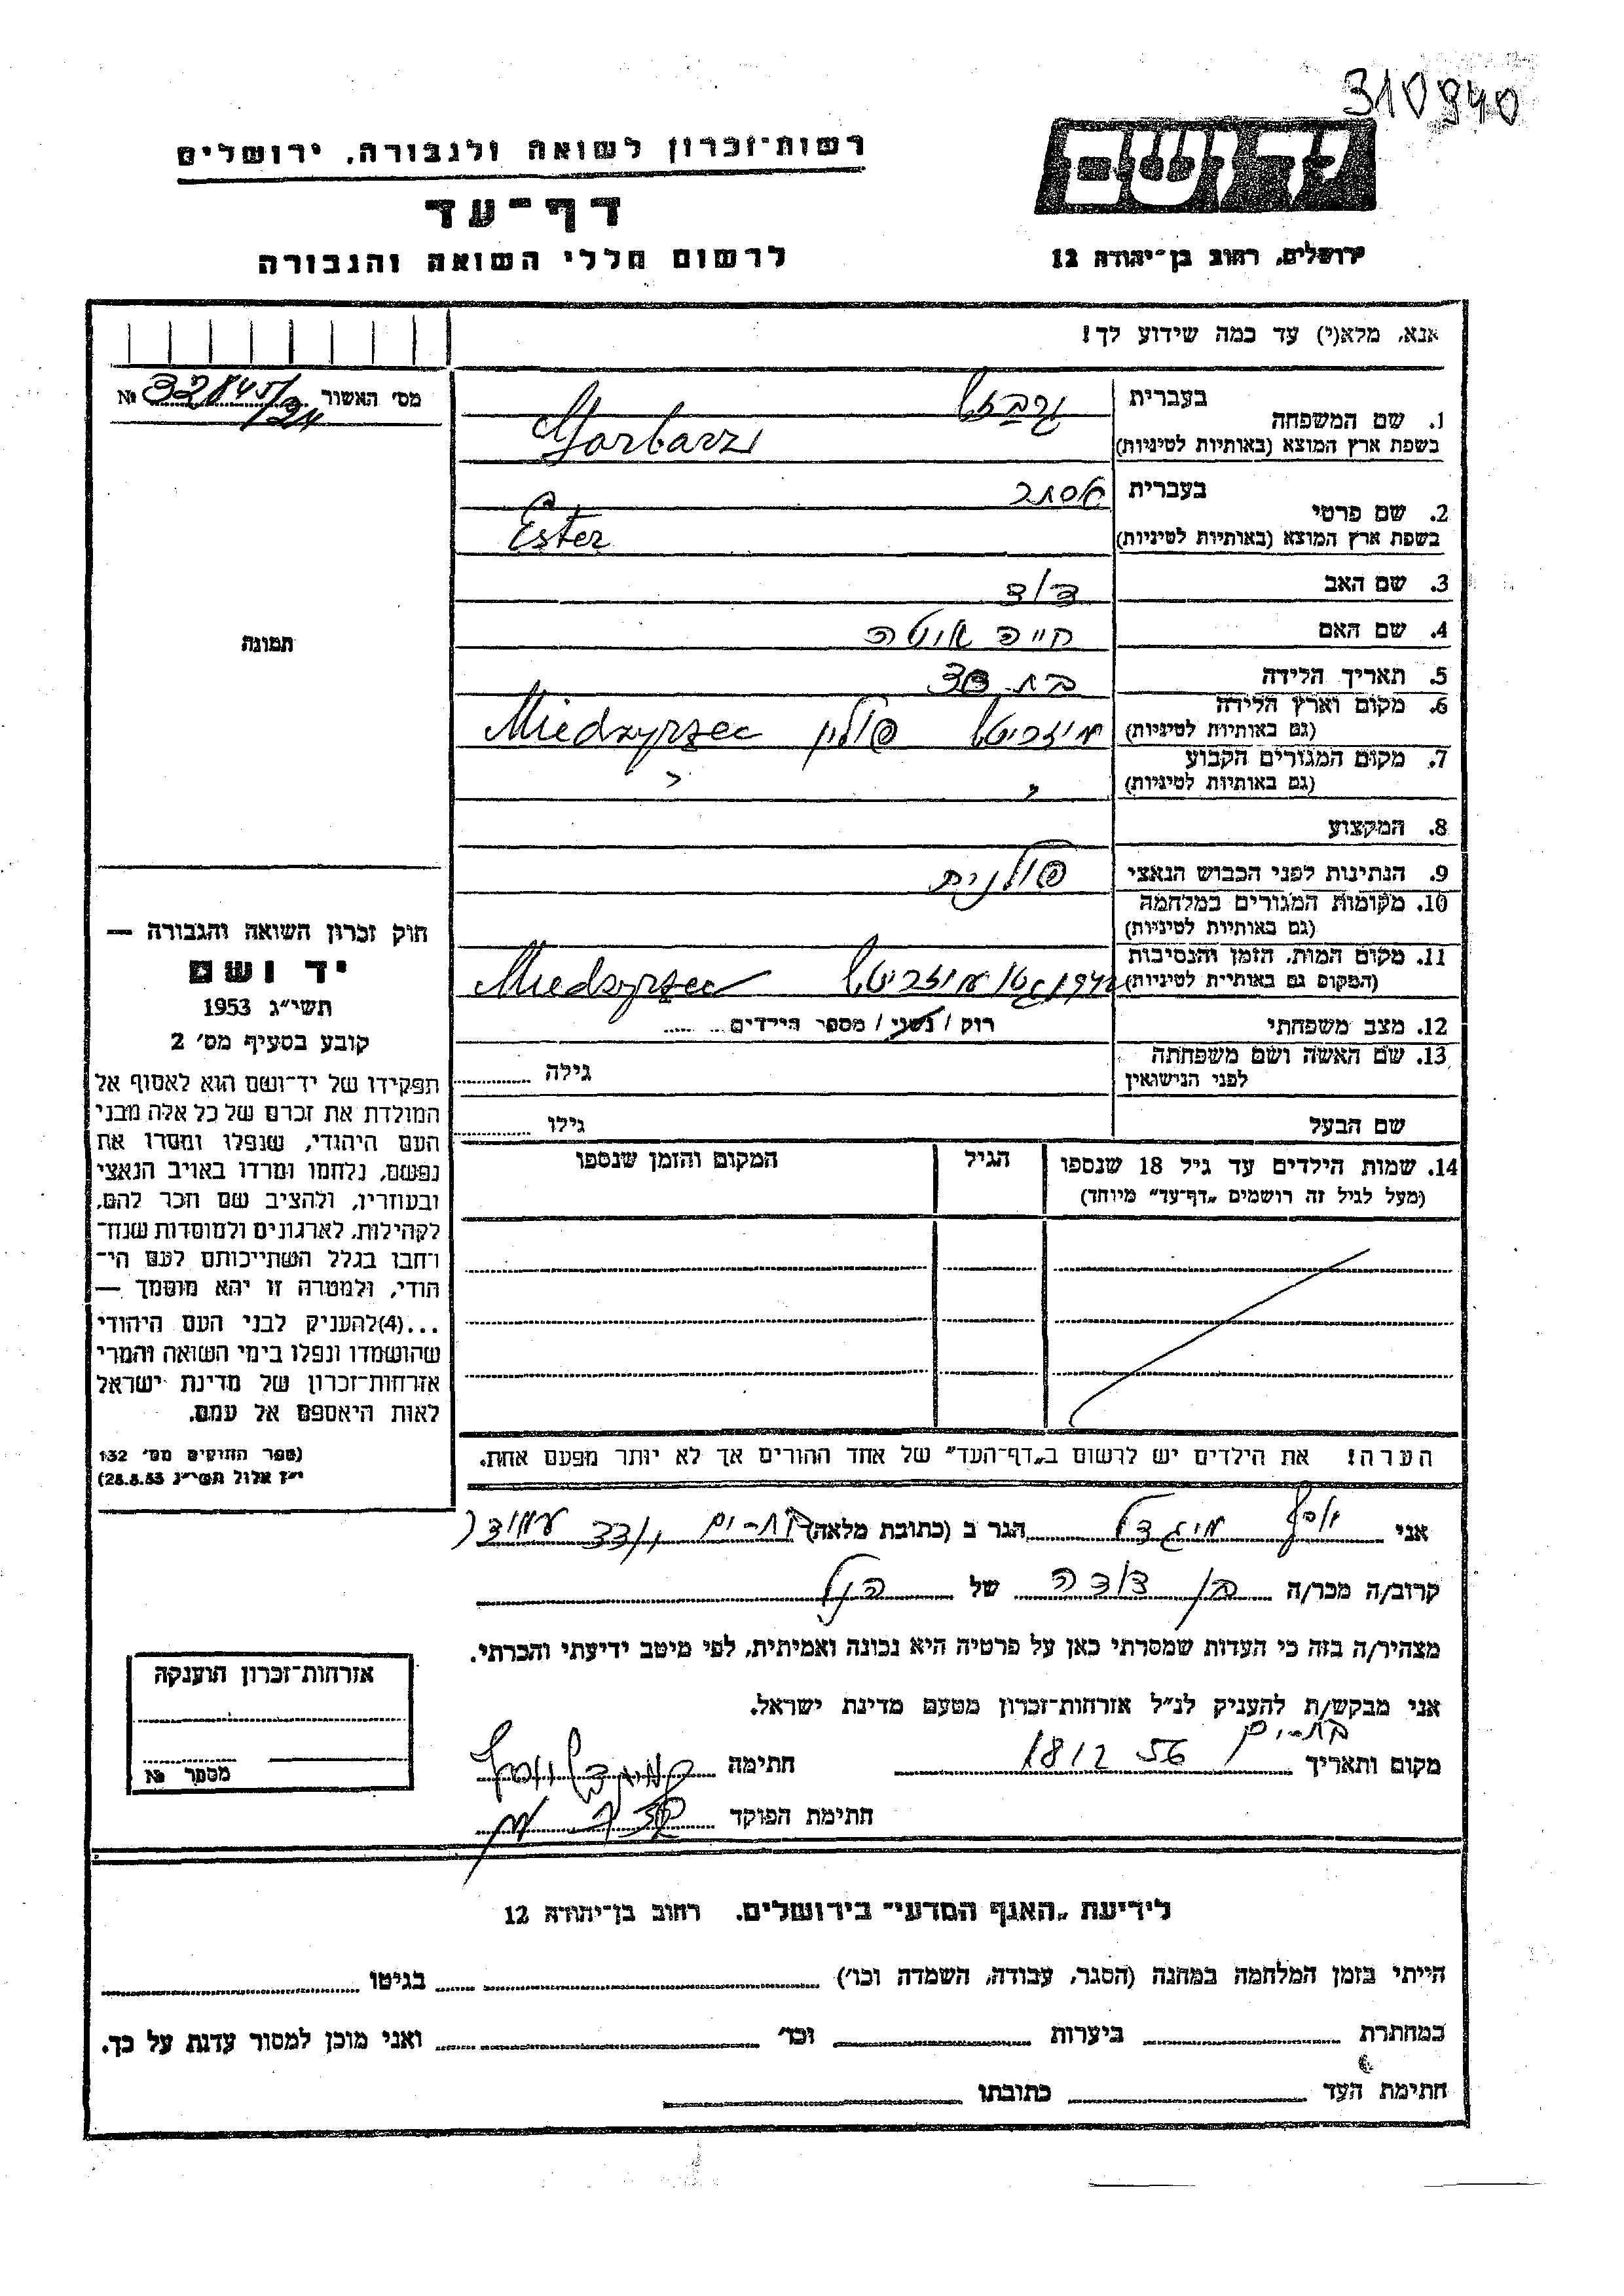 310940
רשות־זכרון לשואה ולגבורה, ירושלים
דף־עד
לרשום חללי השואה והגבורה
יד ושם
ירושלים, רחוב בן־יהודה 12
אנא, מלא(י) עד כמה שידוע לך!
מס׳ האשור 32845/24 №
תמונה
1. שם המשפחה
בעברית
בשפת ארץ המוצא (באותיות לטיניות) Garbarz
2. שם פרטי
בעברית אסתר
בשפת ארץ המוצא (באותיות לטיניות) Ester
3. שם האב דוד
4. שם האם חייה איטה
5. תאריך הלידה בת 38
6. מקום וארץ הלידה
(גם באותיות לטיניות) פולין Miedzyrzec
7. מקום המגורים הקבוע
(גם באותיות לטיניות) " "
8. המקצוע
9. הנתינות לפני הכבוש הנאצי פולנית
10. מקומות המגורים במלחמה
(גם באותיות לטיניות)
11. מקום המות, הזמן והנסיבות
(המקום גם באותיות לטיניות) 1942 Miedzyrzec
12. מצב משפחתי רוק / נשוי / מספר הילדים
13. שם האשה ושם משפחתה
לפני הנישואין גילה
שם הבעל גילו
14. שמות הילדים עד גיל 18 שנספו הגיל המקום והזמן שנספו
(מעל לגיל זה רושמים „דף־עד״ מיוחד)
הערה! את הילדים יש לרשום ב„דף־העד״ של אחד ההורים אך לא יותר מפעם אחת.
חוק זכרון השואה והגבורה —
יד ושם
תשי״ג 1953
קובע בסעיף מס׳ 2
תפקידו של יד־ושם הוא לאסוף אל
המולדת את זכרם של כל אלה מבני
העם היהודי, שנפלו ומסרו את
נפשם, נלחמו ומרדו באויב הנאצי
ובעוזריו, ולהציב שם וזכר להם,
לקהילות, לארגונים ולמוסדות שנח־
רבו בגלל השתייכותם לעם הי־
הודי, ולמטרה זו יהא מוסמך —
...(4)להעניק לבני העם היהודי
שהושמדו ונפלו בימי השואה והמרי
אזרחות־זכרון של מדינת ישראל
לאות היאספם אל עמם.
(ספר החוקים מס׳ 132
י״ז אלול תשי״ג 28.8.53)
אני יוסף מיגדל הגר ב (כתובת מלאה) בת־ים
קרוב/ה מכר/ה בן דודה של הנ״ל
מצהיר/ה בזה כי העדות שמסרתי כאן על פרטיה היא נכונה ואמיתית, לפי מיטב ידיעתי והכרתי.
אני מבקש/ת להעניק לנ״ל אזרחות־זכרון מטעם מדינת ישראל.
מקום ותאריך בת־ים 18 12 56 חתימה
חתימת הפוקד
אזרחות־זכרון הוענקה
מספר №
לידיעת „האגף המדעי״ בירושלים. רחוב בן־יהודה 12
הייתי בזמן המלחמה במחנה (הסגר, עבודה, השמדה וכו׳) בגיטו
במחתרת ביערות וכו׳ ואני מוכן למסור עדות על כך.
חתימת העד כתובתו